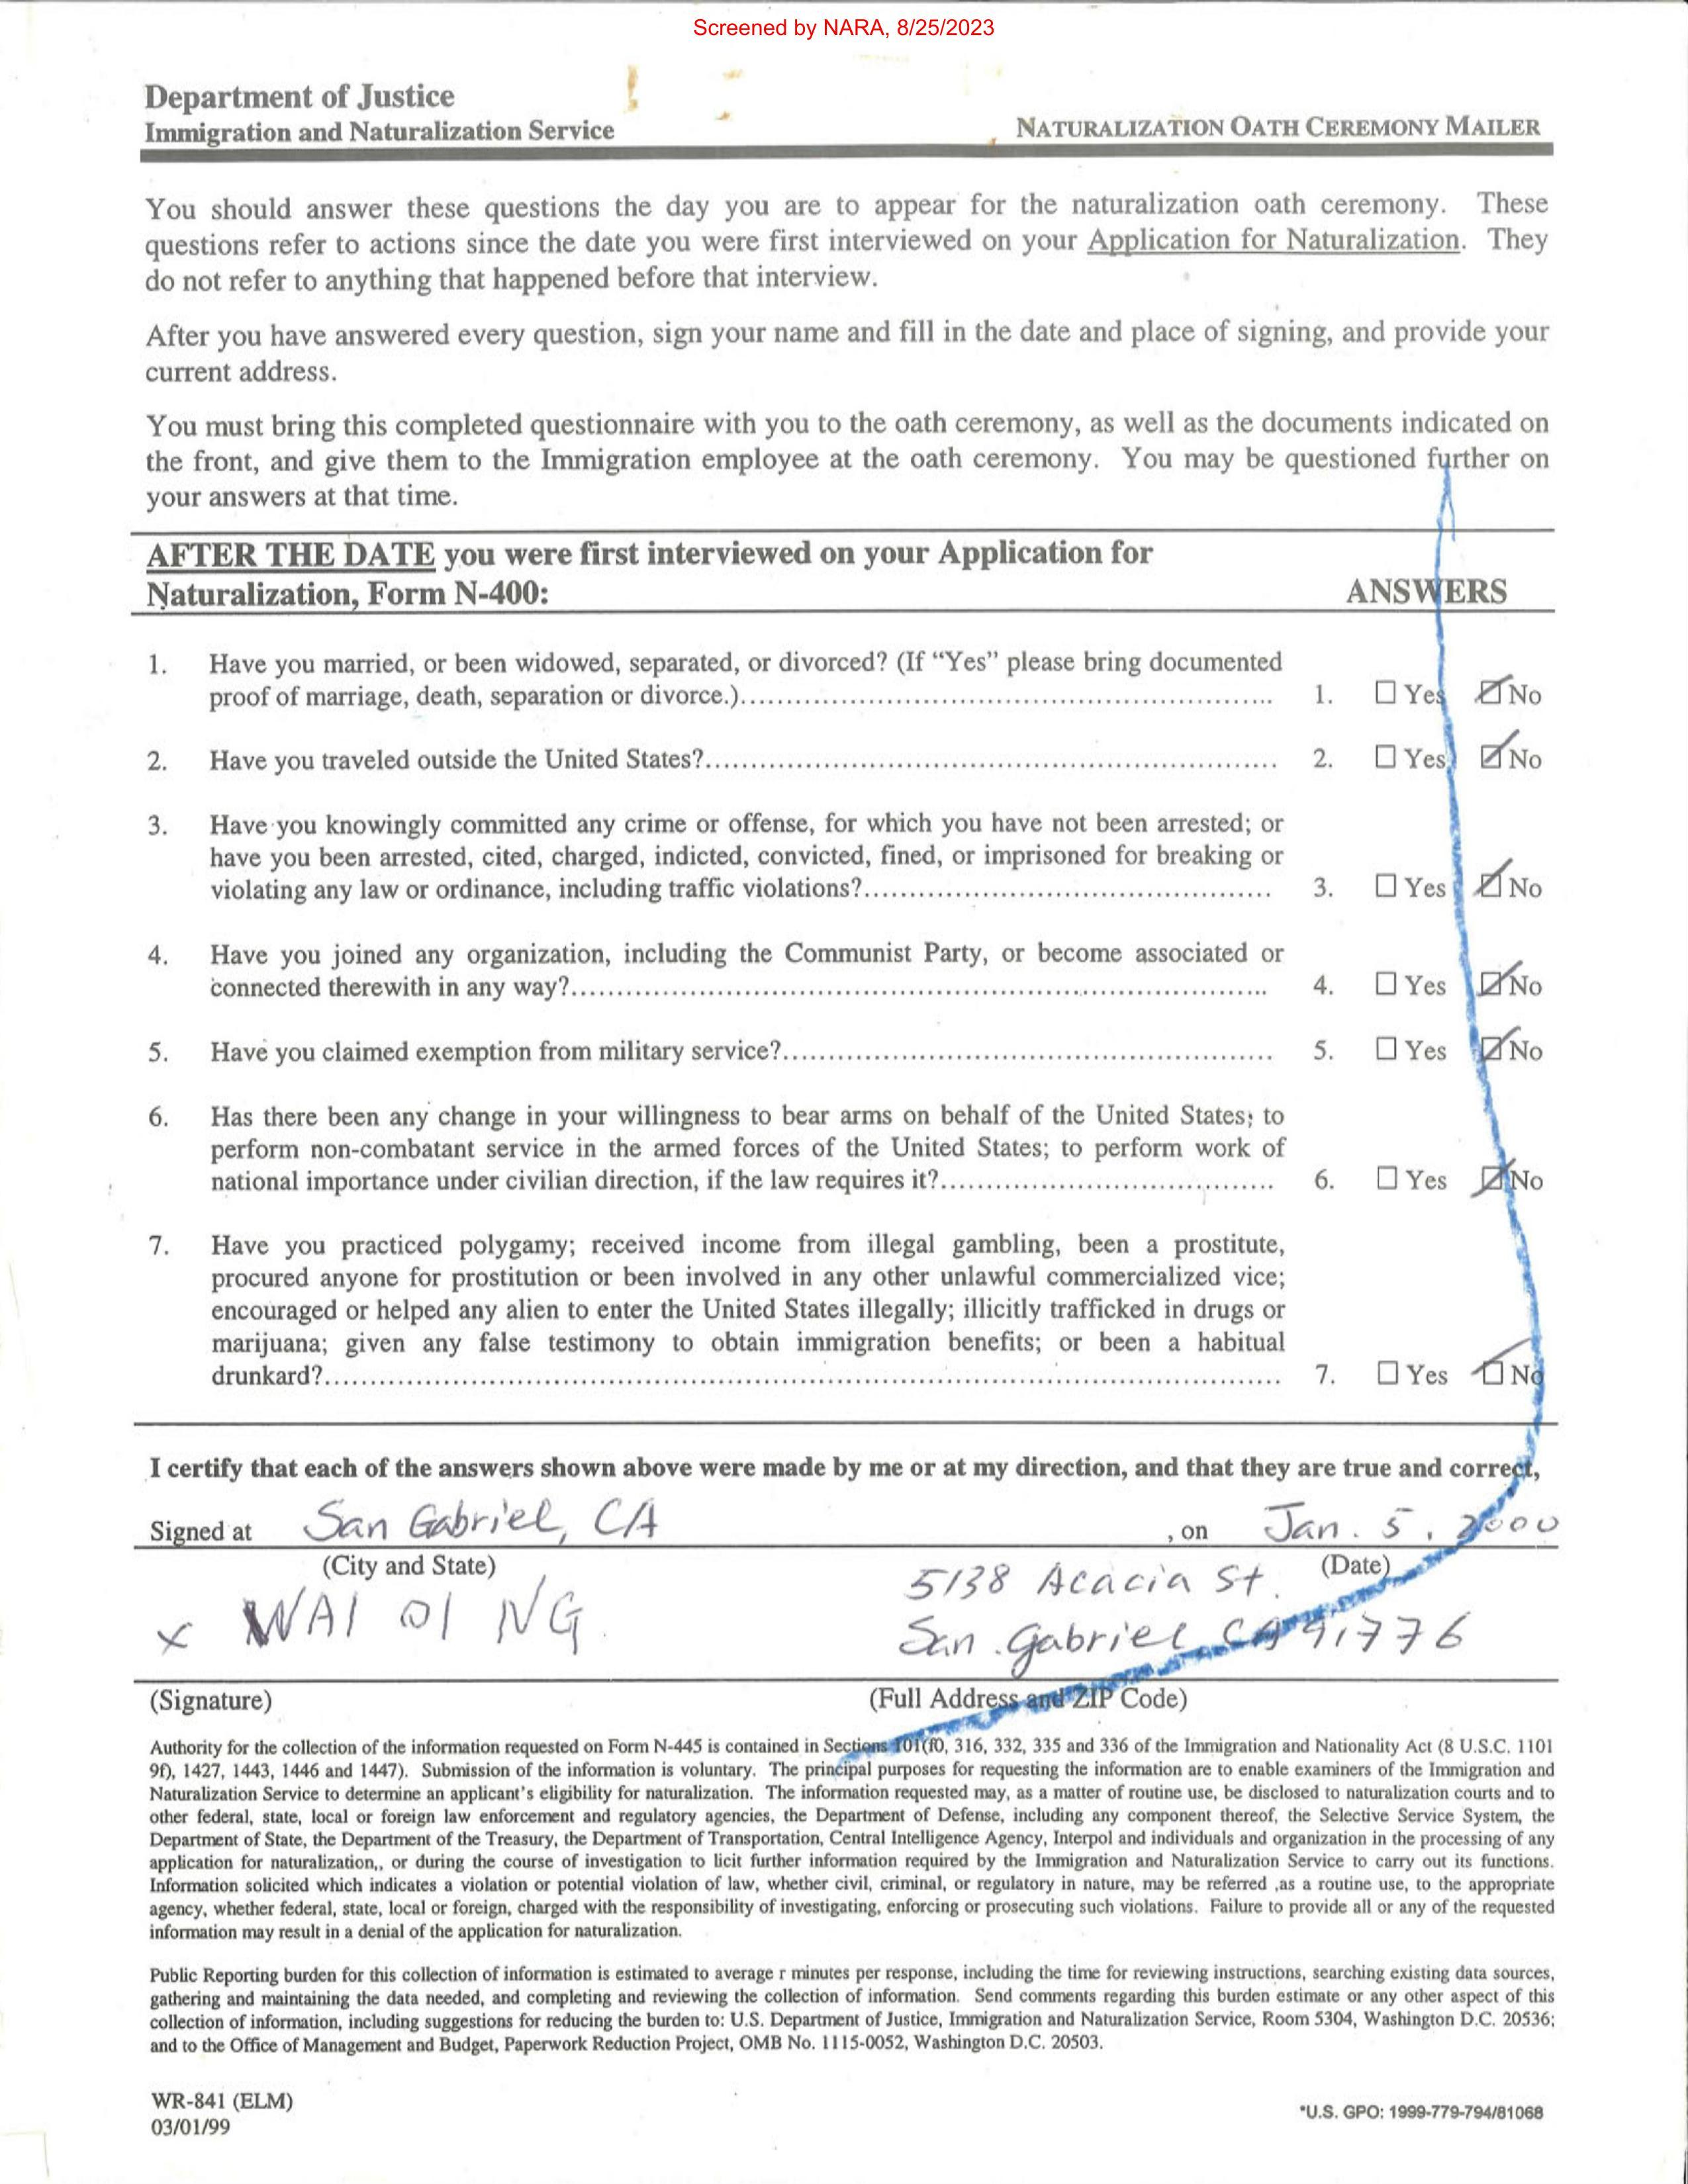 Screened by NARA, 8/25/2023
Department of Justice
Immigration and Naturalization Service
NATURALIZATION OATH CEREMONY MAILER
You should answer these questions the day you are to appear for the naturalization oath ceremony. These
questions refer to actions since the date you were first interviewed on your Application for Naturalization. They
do not refer to anything that happened before that interview.
After you have answered every question, sign your name and fill in the date and place of signing, and provide your
current address.
You must bring this completed questionnaire with you to the oath ceremony, as well as the documents indicated on
the front, and give them to the Immigration employee at the oath ceremony. You may be questioned further on
your answers at that time.
AFTER THE DATE you were first interviewed on your Application for
Naturalization, Form N-400: ANSWERS
1. Have you married, or been widowed, separated, or divorced? (If “Yes” please bring documented
proof of marriage, death, separation or divorce.)........ 1. ☐ Yes ☑ No
2. Have you traveled outside the United States?........ 2. ☐ Yes ☑ No
3. Have you knowingly committed any crime or offense, for which you have not been arrested; or
have you been arrested, cited, charged, indicted, convicted, fined, or imprisoned for breaking or
violating any law or ordinance, including traffic violations?........ 3. ☐ Yes ☑ No
4. Have you joined any organization, including the Communist Party, or become associated or
connected therewith in any way?........ 4. ☐ Yes ☑ No
5. Have you claimed exemption from military service?........ 5. ☐ Yes ☑ No
6. Has there been any change in your willingness to bear arms on behalf of the United States; to
perform non-combatant service in the armed forces of the United States; to perform work of
national importance under civilian direction, if the law requires it?........ 6. ☐ Yes ☑ No
7. Have you practiced polygamy; received income from illegal gambling, been a prostitute,
procured anyone for prostitution or been involved in any other unlawful commercialized vice;
encouraged or helped any alien to enter the United States illegally; illicitly trafficked in drugs or
marijuana; given any false testimony to obtain immigration benefits; or been a habitual
drunkard?........ 7. ☐ Yes ☑ No
I certify that each of the answers shown above were made by me or at my direction, and that they are true and correct,
Signed at San Gabriel, CA , on Jan. 5, 2000
(City and State) (Date)
5138 Acacia St.
x WAI OI NG San Gabriel CA 91776
(Signature) (Full Address and ZIP Code)
Authority for the collection of the information requested on Form N-445 is contained in Sections 101(f0, 316, 332, 335 and 336 of the Immigration and Nationality Act (8 U.S.C. 1101
9f), 1427, 1443, 1446 and 1447). Submission of the information is voluntary. The principal purposes for requesting the information are to enable examiners of the Immigration and
Naturalization Service to determine an applicant's eligibility for naturalization. The information requested may, as a matter of routine use, be disclosed to naturalization courts and to
other federal, state, local or foreign law enforcement and regulatory agencies, the Department of Defense, including any component thereof, the Selective Service System, the
Department of State, the Department of the Treasury, the Department of Transportation, Central Intelligence Agency, Interpol and individuals and organization in the processing of any
application for naturalization,, or during the course of investigation to licit further information required by the Immigration and Naturalization Service to carry out its functions.
Information solicited which indicates a violation or potential violation of law, whether civil, criminal, or regulatory in nature, may be referred ,as a routine use, to the appropriate
agency, whether federal, state, local or foreign, charged with the responsibility of investigating, enforcing or prosecuting such violations. Failure to provide all or any of the requested
information may result in a denial of the application for naturalization.
Public Reporting burden for this collection of information is estimated to average r minutes per response, including the time for reviewing instructions, searching existing data sources,
gathering and maintaining the data needed, and completing and reviewing the collection of information. Send comments regarding this burden estimate or any other aspect of this
collection of information, including suggestions for reducing the burden to: U.S. Department of Justice, Immigration and Naturalization Service, Room 5304, Washington D.C. 20536;
and to the Office of Management and Budget, Paperwork Reduction Project, OMB No. 1115-0052, Washington D.C. 20503.
WR-841 (ELM)
03/01/99
*U.S. GPO: 1999-779-794/81068